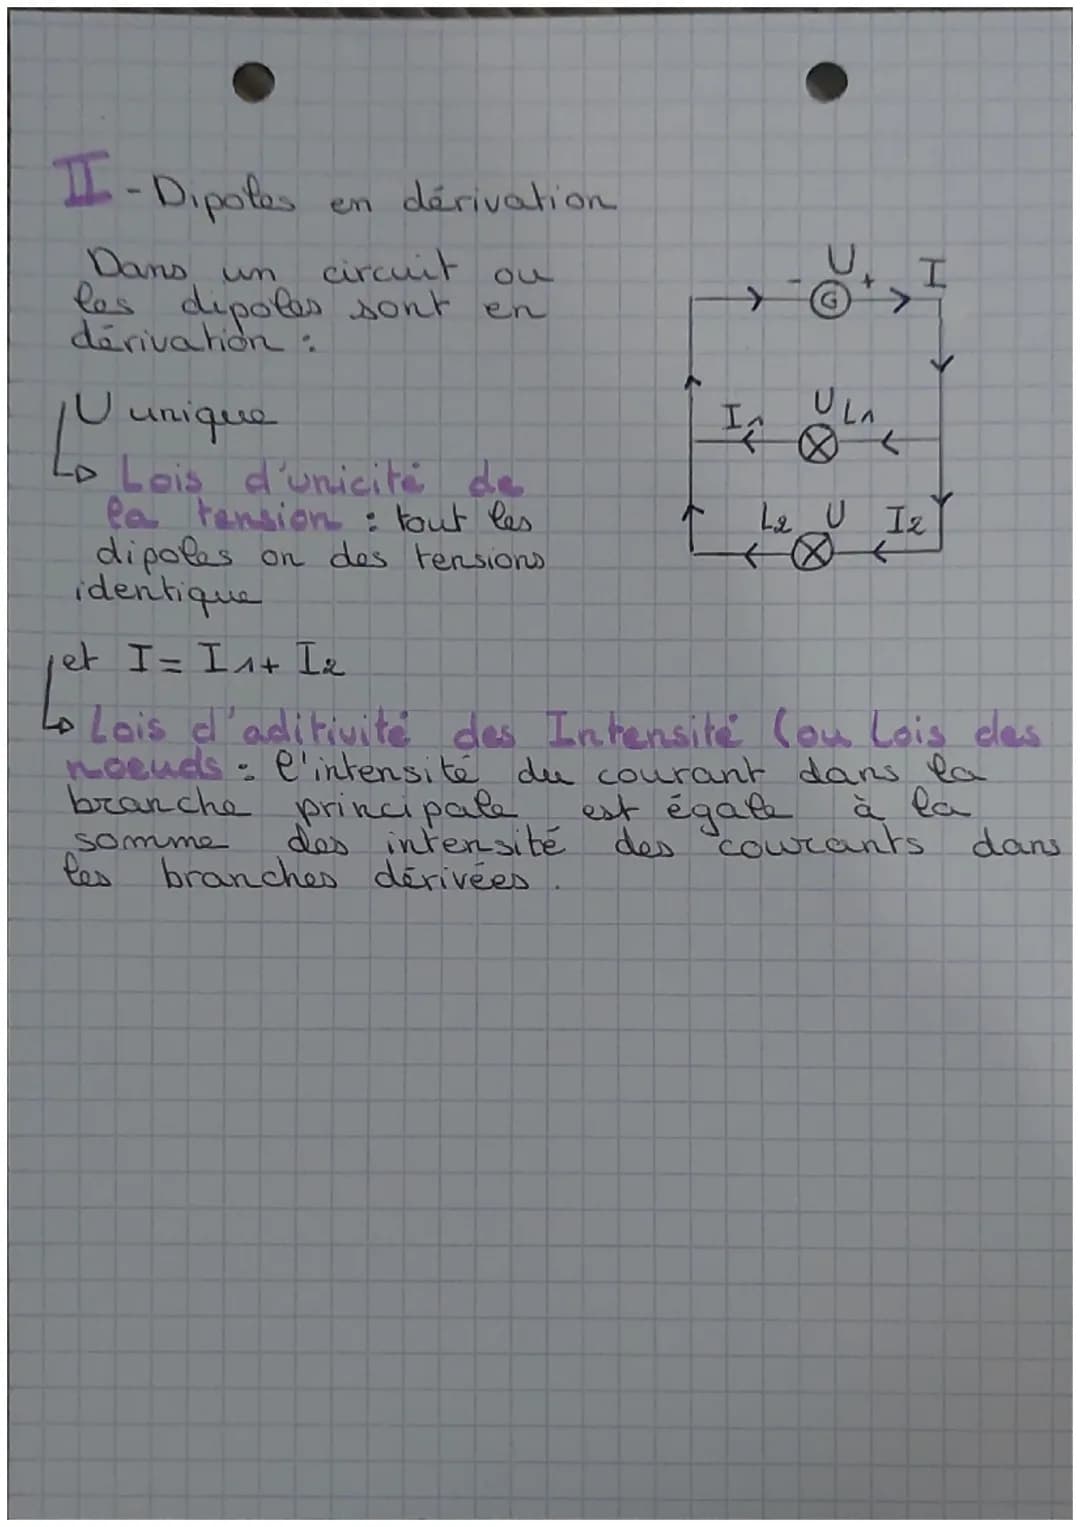 II - Dipoles en dérivation
Dans un circuit ou
les dipoles sont en
dérivation :
U unique
Lois d'unicité de
la tension : tout les
dipoles on des tensions
identique
et I = I1 + I2
Lois d'aditivité des Intensité (ou Lois des
noeuds : l'intensité du courant dans la
branche principale est égale à la
somme des intensité des courants dans
les branches dérivées.
U
- + I
G
I1 U L1
L2 U I2